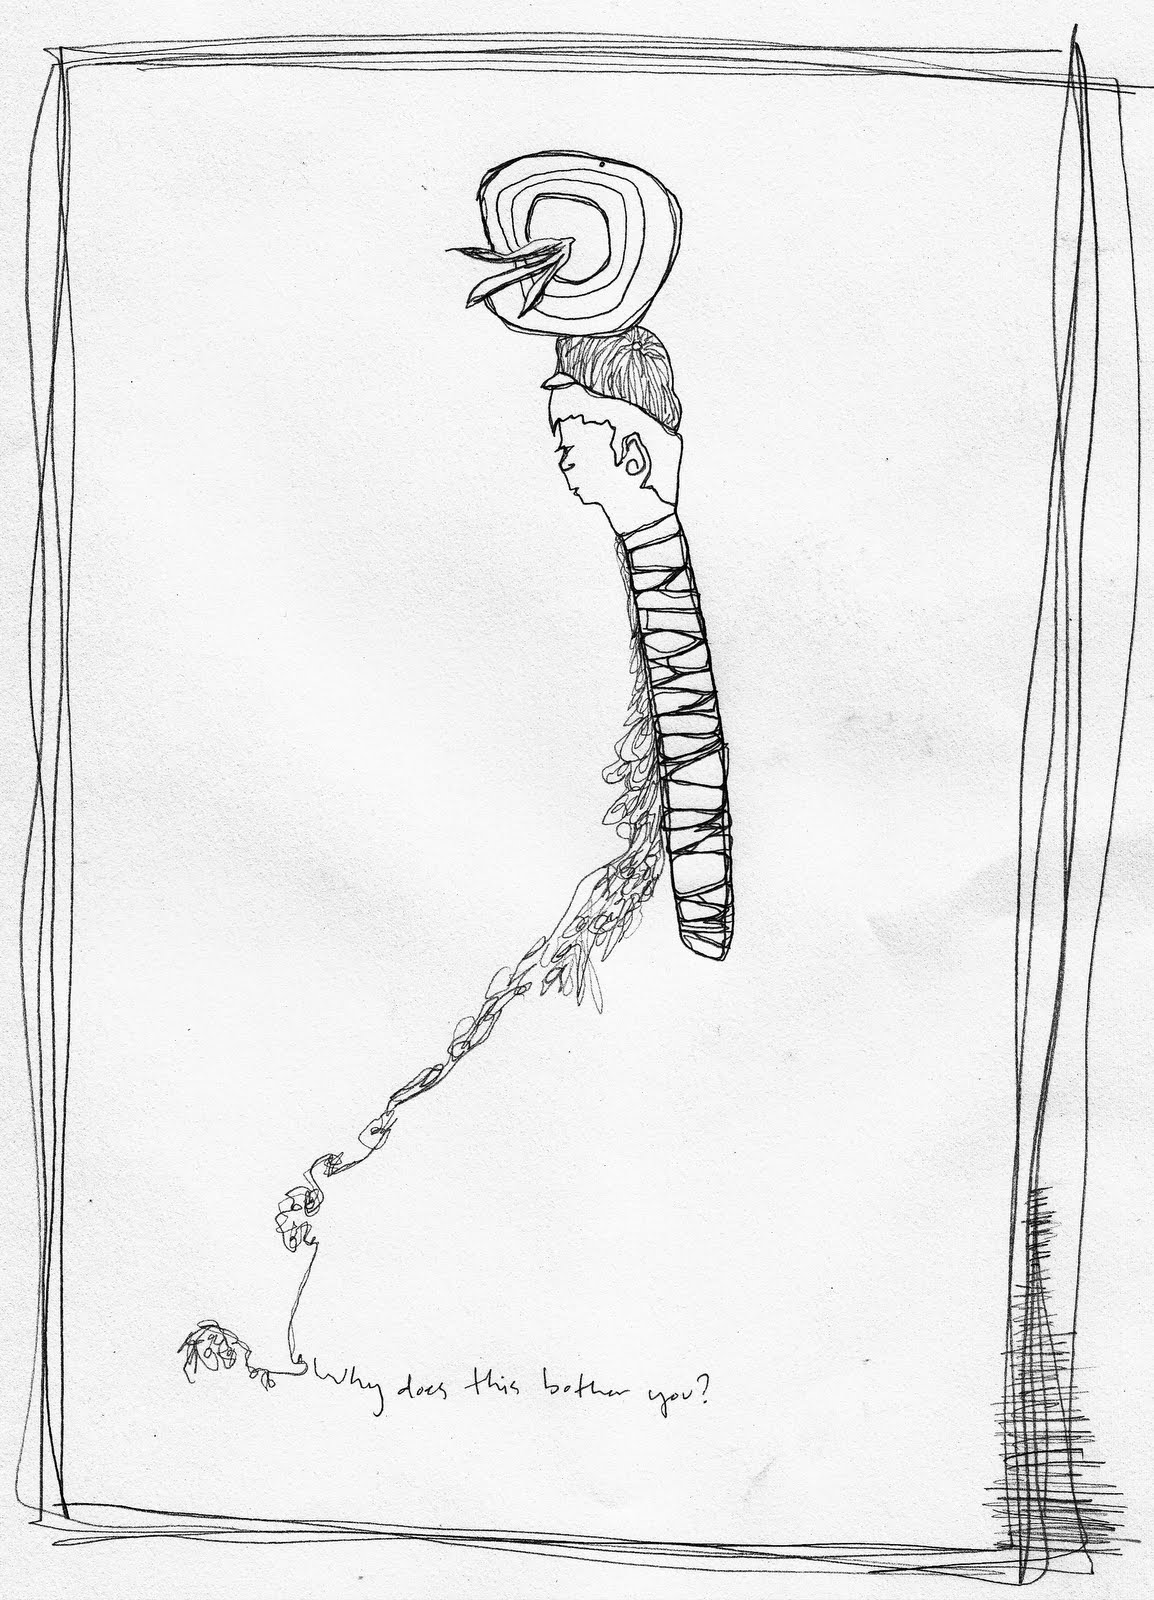 Why does this bother you?